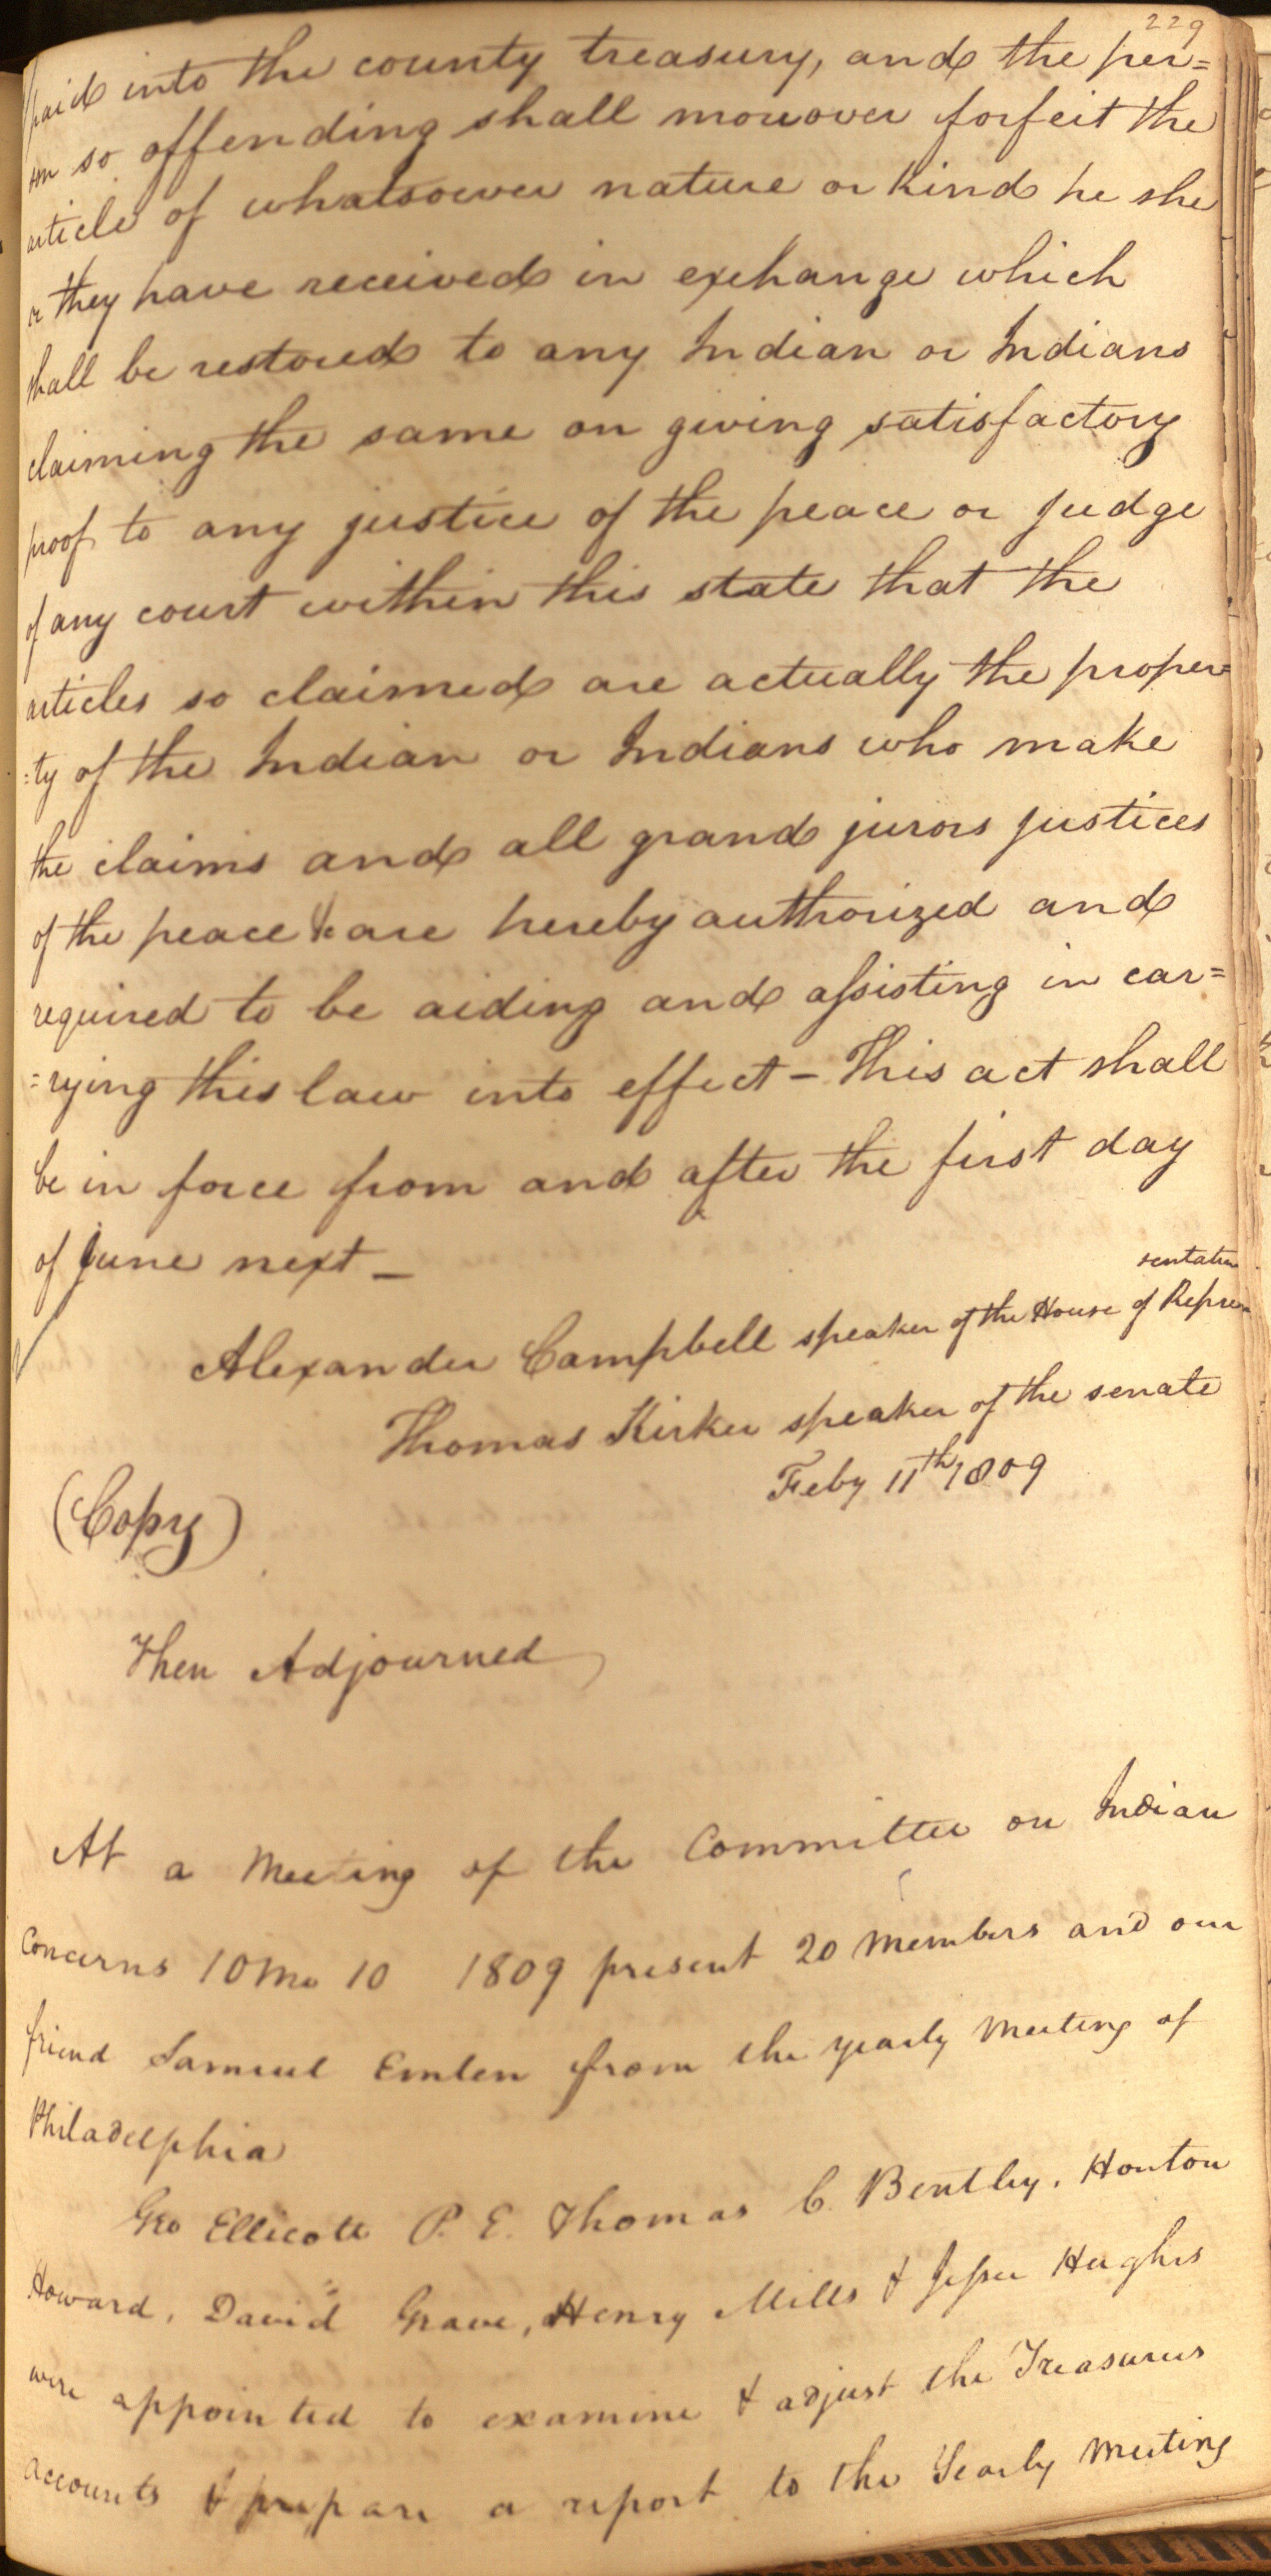 229
paid into the county treasury, and the per=
son so offending shall moreover forfeit the
article of whatsoever nature or kind he she
or they have received in exchange which
shall be restored to any Indian or Indians
claiming the same on giving satisfactory
proof to any justice of the peace or judge
of any court within this state that the
articles so claimed are actually the proper=
=ty of the Indian or Indians who make
the claims and all grand jurors justices
of the peace &c are hereby authorized and
required to be aiding and assisting in car=
=rying this law into effect – This act shall
be in force from and after the first day
of June next –
Alexander Campbell speaker of the House of Repre=
sentative
Thomas Kirker speaker of the senate
Feby 11th 1809
(Copy)
Then Adjourned
At a Meeting of the Committee on Indian
Concerns 10 mo 10 1809 present 20 Members and our
friend Samuel Emlen from the yearly Meeting of
Philadelphia
Geo Ellicott P. E. Thomas C. Bentley, Houton
Howard, David Grave, Henry Mills & Jesse Hughes
were appointed to examine & adjust the Treasurers
accounts & prepare a report to the Yearly Meeting